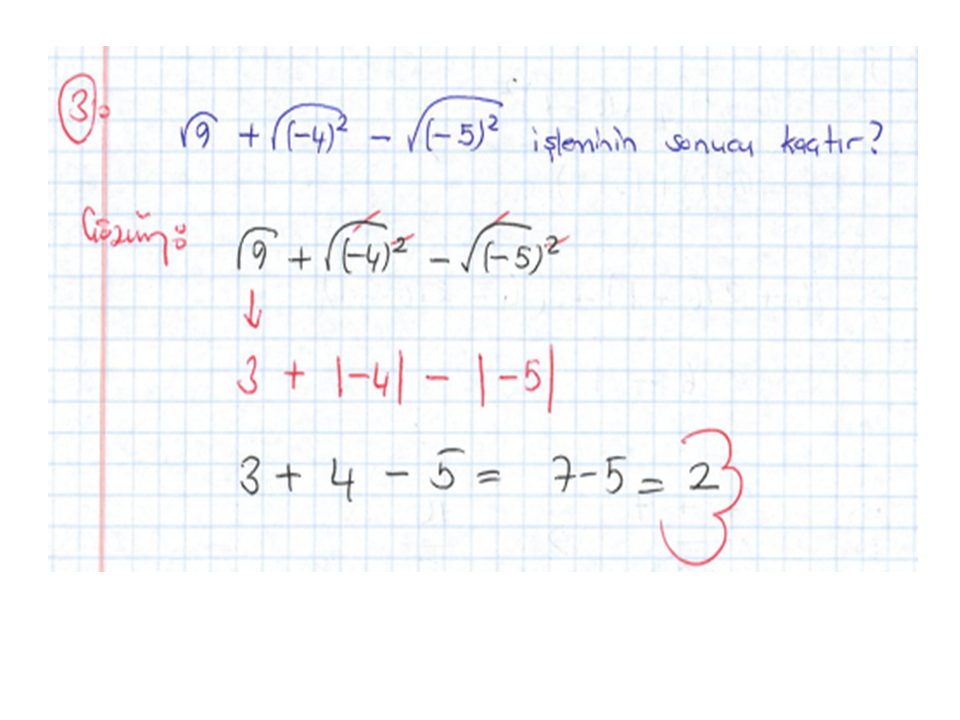 3. √9 + √(-4)² - √(-5)² işleminin sonucu kaçtır?
Çözüm: √9 + √(-4)² - √(-5)²
↓
3 + |-4| - |-5|
3 + 4 - 5 = 7-5 = 2